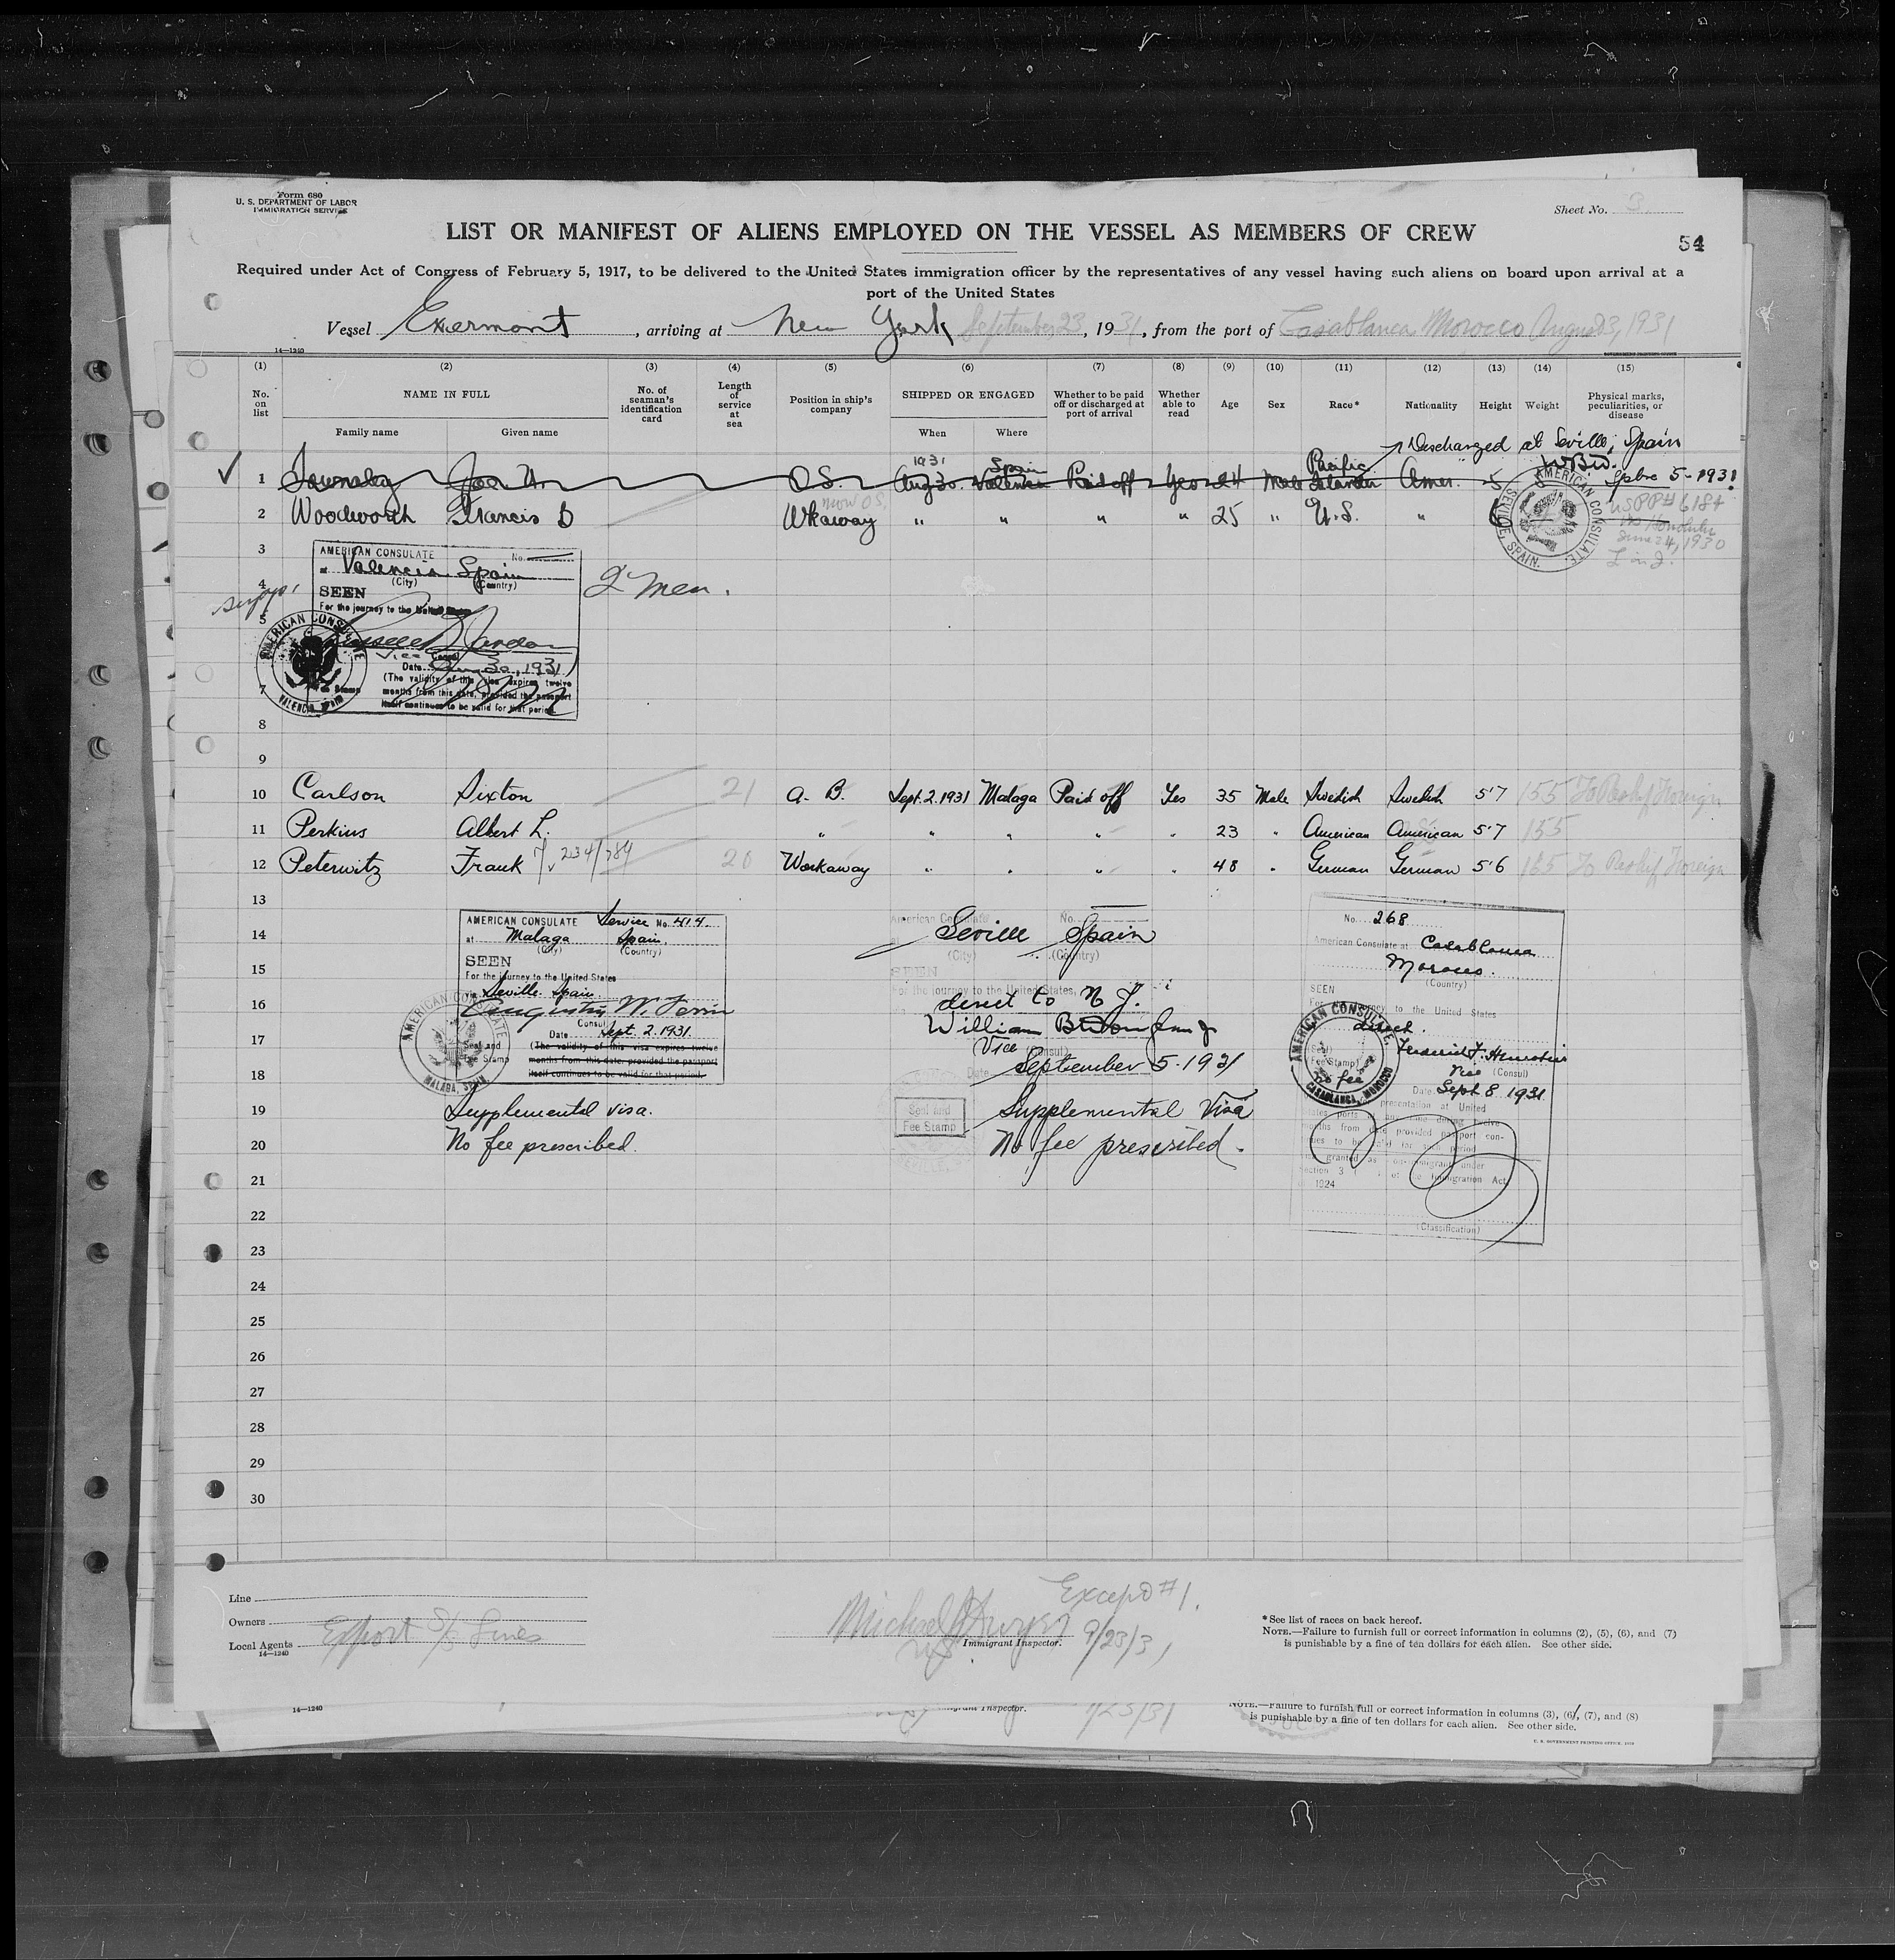 Form 680
U. S. DEPARTMENT OF LABOR
IMMIGRATION SERVICE
Sheet No. 3
54
LIST OR MANIFEST OF ALIENS EMPLOYED ON THE VESSEL AS MEMBERS OF CREW
Required under Act of Congress of February 5, 1917, to be delivered to the United States immigration officer by the representatives of any vessel having such aliens on board upon arrival at a
port of the United States
Vessel Exermont, arriving at New York September 23, 1931, from the port of Casablanca Morocco 1931
14—1240
(1) (2) (3) (4) (5) (6) (7) (8) (9) (10) (11) (12) (13) (14) (15)
No. on list NAME IN FULL No. of seaman's identification card Length of service at sea Position in ship's company SHIPPED OR ENGAGED Whether to be paid off or discharged at port of arrival Whether able to read Age Sex Race* Nationality Height Weight Physical marks, peculiarities, or disease
Family name Given name When Where
Discharged at Seville, Spain
1931 Spain Pacific
1 Joe O.S. Aug 30. Valencia Paid off Yes 24 Male Islander Amer. 5 5-1931
now O.S.
2 Woodworth Francis D Wkaway " " " " 25 " U.S. " 6
USPP# 6184
Honolulu
June 24, 1930
3
AMERICAN CONSULATE No.
at Valencia Spain
(City) (Country)
2 Men.
4
SEEN
For the journey to the United States
5
Vice Consul
Date Aug 30, 1931
(The validity of this visa expires twelve
months from this date, provided the passport
itself continues to be valid for that period.
Fee Stamp
AMERICAN CONSULATE
VALENCIA, SPAIN
7
8
9
AMERICAN CONSULATE
SEVILLE, SPAIN.
10 Carlson Sixton 21 A. B. Sept. 2. 1931 Malaga Paid off Yes 35 Male Swedish Swedish 5'7 155 To Reship Foreign
11 Perkins Albert L. " " " " " 23 " American American 5'7 155
12 Peterwitz Frank 20 Workaway " " " " 48 " German German 5'6 165 To Reship Foreign
13
14
15
16
17
18
19
20
21
22
23
24
25
26
27
28
29
30
AMERICAN CONSULATE Service No. 414.
at Malaga Spain.
(City) (Country)
SEEN
For the journey to the United States
Seville Spain.
Augustin W. Ferrin
Consul
Date Sept. 2. 1931.
Seal and
Fee Stamp
(The validity of this visa expires twelve
months from this date, provided the passport
itself continues to be valid for that period.
AMERICAN CONSULATE
MALAGA, SPAIN
Supplemental visa.
No fee prescribed.
American Consulate No.
Seville Spain
(City) (Country)
SEEN
For the journey to the United States,
direct to N Y.
William
Vice (Consul)
Date September 5-1931
Seal and
Fee Stamp
Supplemental Visa
No fee prescribed.
No. 268
American Consulate at Casablanca
Morocco.
(Country)
SEEN
For journey to the United States
direct.
(Seal)
(Fee Stamp)
no fee
Vice (Consul)
Date Sept 8 1931
AMERICAN CONSULATE.
CASABLANCA, MOROCCO
presentation at United
States ports
months from date provided passport con-
tinues to be for period
granted as non-immigrant under
Section 3 of the Immigration Act
1924
(Classification)
Line
Owners
Local Agents Export S/S Lines
14—1240
Except #1.
Michael Dwyer
Immigrant Inspector. 9/23/31
*See list of races on back hereof.
NOTE.—Failure to furnish full or correct information in columns (2), (5), (6), and (7)
is punishable by a fine of ten dollars for each alien. See other side.
14—1240
Inspector.
NOTE.—Failure to furnish full or correct information in columns (3), (6), (7), and (8)
is punishable by a fine of ten dollars for each alien. See other side.
U. S. GOVERNMENT PRINTING OFFICE